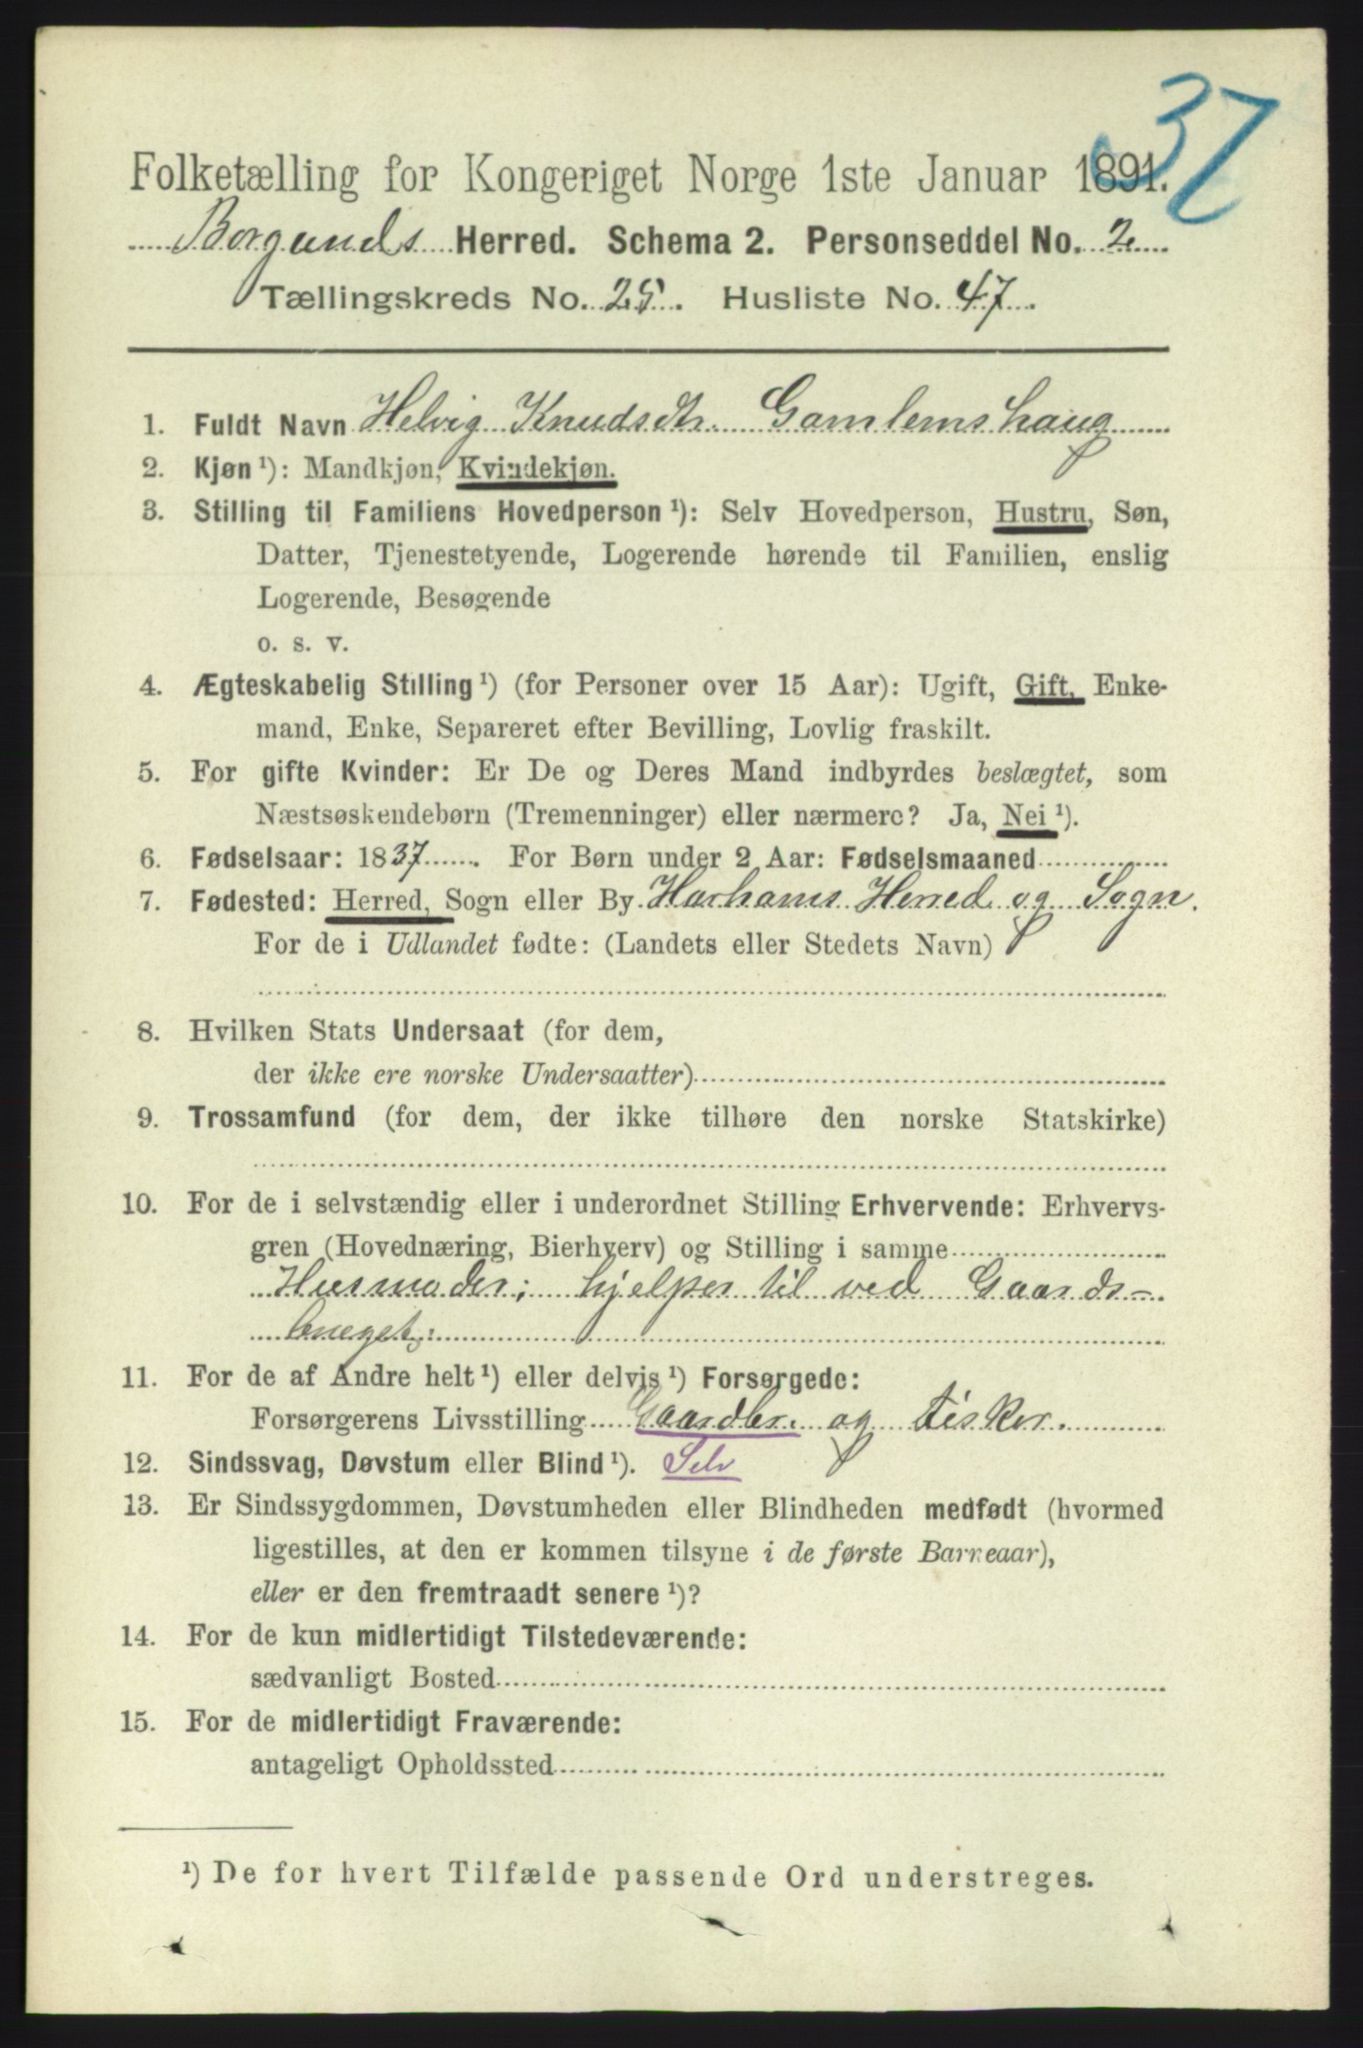 37
Folketælling for Kongeriget Norge 1ste Januar 1891.
Borgunds Herred. Schema 2. Personseddel No. 2
Tællingskreds No. 25. Husliste No. 47.
1. Fuldt Navn Helvig Knudsdtr. Gamlemshaug
2. Kjøn ¹): Mandkjøn, Kvindekjøn.
3. Stilling til Familiens Hovedperson ¹): Selv Hovedperson, Hustru, Søn,
Datter, Tjenestetyende, Logerende hørende til Familien, enslig
Logerende, Besøgende
o. s. v.
4. Ægteskabelig Stilling ¹) (for Personer over 15 Aar): Ugift, Gift, Enke-
mand, Enke, Separeret efter Bevilling, Lovlig fraskilt.
5. For gifte Kvinder: Er De og Deres Mand indbyrdes beslægtet, som
Næstsøskendebørn (Tremenninger) eller nærmere? Ja, Nei ¹).
6. Fødselsaar: 1837. For Børn under 2 Aar: Fødselsmaaned
7. Fødested: Herred, Sogn eller By Harhams Herred og Sogn.
For de i Udlandet fødte: (Landets eller Stedets Navn)
8. Hvilken Stats Undersaat (for dem,
der ikke ere norske Undersaatter)
9. Trossamfund (for dem, der ikke tilhøre den norske Statskirke)
10. For de i selvstændig eller i underordnet Stilling Erhvervende: Erhvervs-
gren (Hovednæring, Bierhverv) og Stilling i samme
Husmoder; hjelper til ved Gaards-
bruget;
11. For de af Andre helt ¹) eller delvis ¹) Forsørgede:
Forsørgerens Livsstilling Gaardbr. og fisker.
12. Sindssvag, Døvstum eller Blind ¹). Selv
13. Er Sindssygdommen, Døvstumheden eller Blindheden medfødt (hvormed
ligestilles, at den er kommen tilsyne i de første Barneaar),
eller er den fremtraadt senere ¹)?
14. For de kun midlertidigt Tilstedeværende:
sædvanligt Bosted
15. For de midlertidigt Fraværende:
antageligt Opholdssted
¹) De for hvert Tilfælde passende Ord understreges.